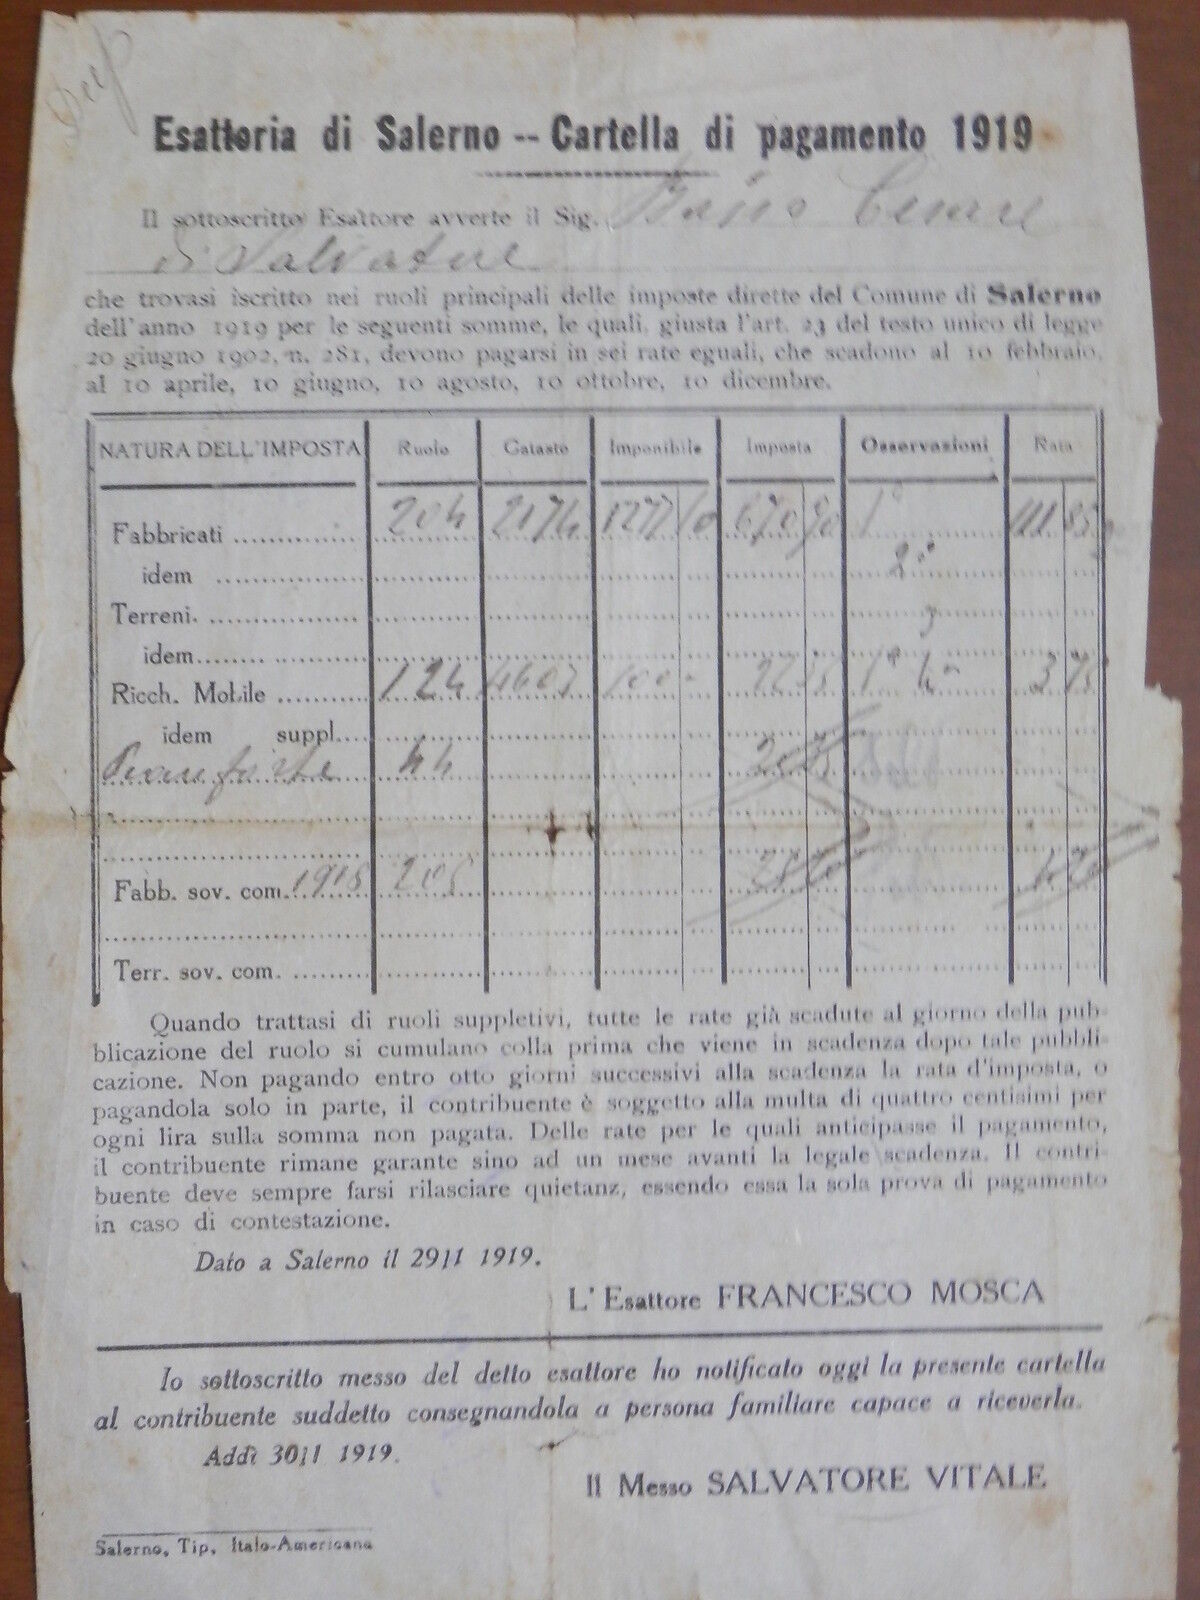 Dup
Esattoria di Salerno -- Cartella di pagamento 1919
Il sottoscritto Esattore avverte il Sig. Cesare
di Salvatore
che trovasi iscritto nei ruoli principali delle imposte dirette del Comune di Salerno
dell'anno 1919 per le seguenti somme, le quali, giusta l'art. 23 del testo unico di legge
20 giugno 1902, n. 281, devono pagarsi in sei rate eguali, che scadono al 10 febbraio,
al 10 aprile, 10 giugno, 10 agosto, 10 ottobre, 10 dicembre.
NATURA DELL'IMPOSTA Ruolo Catasto Imponibile Imposta Osservazioni Rata
Fabbricati 204 2174 1277 10 670 90 1° 111 85
idem 2°
Terreni. 3
idem
Ricch. Mobile 124 4607 100 - 22 55 1° 4° 3 75
idem suppl.
44
Fabb. sov. com. 1918 208
Terr. sov. com.
Quando trattasi di ruoli suppletivi, tutte le rate già scadute al giorno della pub-
blicazione del ruolo si cumulano colla prima che viene in scadenza dopo tale pubbli-
cazione. Non pagando entro otto giorni successivi alla scadenza la rata d'imposta, o
pagandola solo in parte, il contribuente è soggetto alla multa di quattro centisimi per
ogni lira sulla somma non pagata. Delle rate per le quali anticipasse il pagamento,
il contribuente rimane garante sino ad un mese avanti la legale scadenza. Il contri-
buente deve sempre farsi rilasciare quietanz, essendo essa la sola prova di pagamento
in caso di contestazione.
Dato a Salerno il 29|1 1919.
L'Esattore FRANCESCO MOSCA
Io sottoscritto messo del detto esattore ho notificato oggi la presente cartella
al contribuente suddetto consegnandola a persona familiare capace a riceverla.
Addì 30|1 1919.
Il Messo SALVATORE VITALE
Salerno, Tip, Italo-Americana